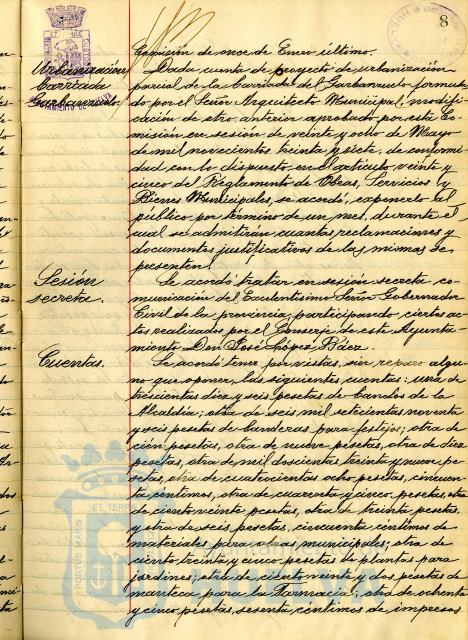 8
Comisión de once de Enero último.
Urbanización
barriada
Garbanzuelo
Dada cuenta de proyecto de urbanización
parcial de la barriada del Garbanzuelo, formula-
do por el Señor Arquitecto Municipal, modifi-
cación de otro anterior aprobado por esta Co-
misión en sesión de veinte y ocho de Mayo
de mil novecientos treinta y siete, de conformi-
dad con lo dispuesto en el artículo veinte y
cinco del Reglamento de Obras, Servicios y
Bienes Municipales, se acordó, exponerlo al
público por término de un mes, durante el
cual se admitirán cuantas reclamaciones y
documentos justificativos de las mismas se
presenten.
Sesión
secreta.
Se acordó tratar en sesión secreta co-
municación del Excelentísimo Señor Gobernador
Civil de la provincia, participando ciertos ac-
tos realizados por el Conserje de este Ayunta-
miento Don José López Báez.
Cuentas.
Se acordó tener por vistas, sin reparo algu-
no que oponer, las siguientes cuentas: una de
trescientas diez y seis pesetas de bandos de la
Alcaldía; otra de seis mil setecientas noventa
y seis pesetas de banderas para festejos; otra de
cien pesetas, otra de nueve pesetas, otra de diez
pesetas, otra de mil doscientas treinta y nueve pe-
setas, otra de cuatrocientas ocho pesetas, cincuen-
ta céntimos, otra de cuarenta y cinco pesetas, otra
de ciento veinte pesetas, otra de treinta pesetas
y otra de seis pesetas, cincuenta céntimos de
materiales para obras municipales; otra de
ciento treinta y cinco pesetas de plantas para
jardines; otra de ciento veinte y dos pesetas de
manteca para la Farmacia; otra de ochenta
y cinco pesetas, sesenta céntimos de impresos